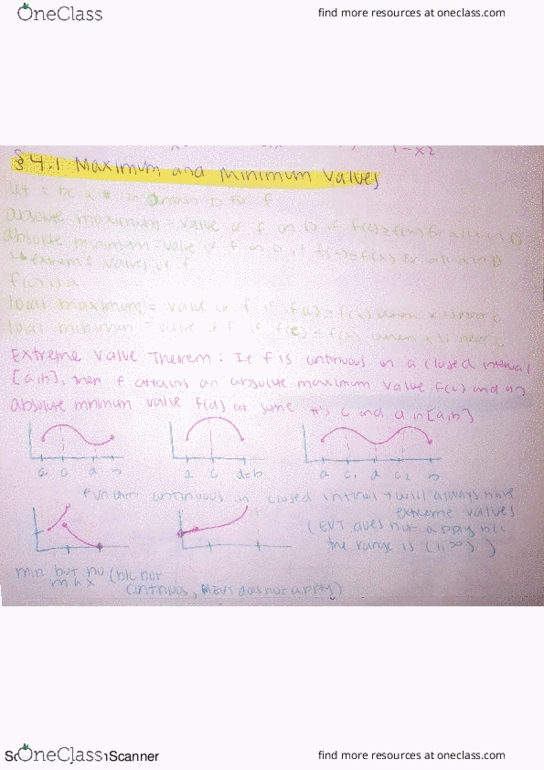 OneClass find more resources at oneclass.com
1-x2
§4.1 Maximum and Minimum Values
let c be a # in domain D for f
absolute maximum = value of f on D if f(c) ≥ f(x) for all x in D
absolute minimum = value of f on D if f(c) ≤ f(x) for all x in D
↳ extreme values of f
f(c) is a
local maximum = value of f if f(c) ≥ f(x) when x is near c
local minimum = value of f if f(c) ≤ f(x) when x is near c
Extreme Value Theorem: If f is continuous on a closed interval
[a,b], then f attains an absolute maximum value f(c) and an
absolute minimum value f(d) at some #'s c and d in [a,b]
a c d b a c d=b a c₁ d c₂ b
function continuous on closed interval → will always have
extreme values
(EVT does not apply b/c
the range is
min but no max (b/c not
continuous, EVT does not apply)
OneClass Scanner find more resources at oneclass.com